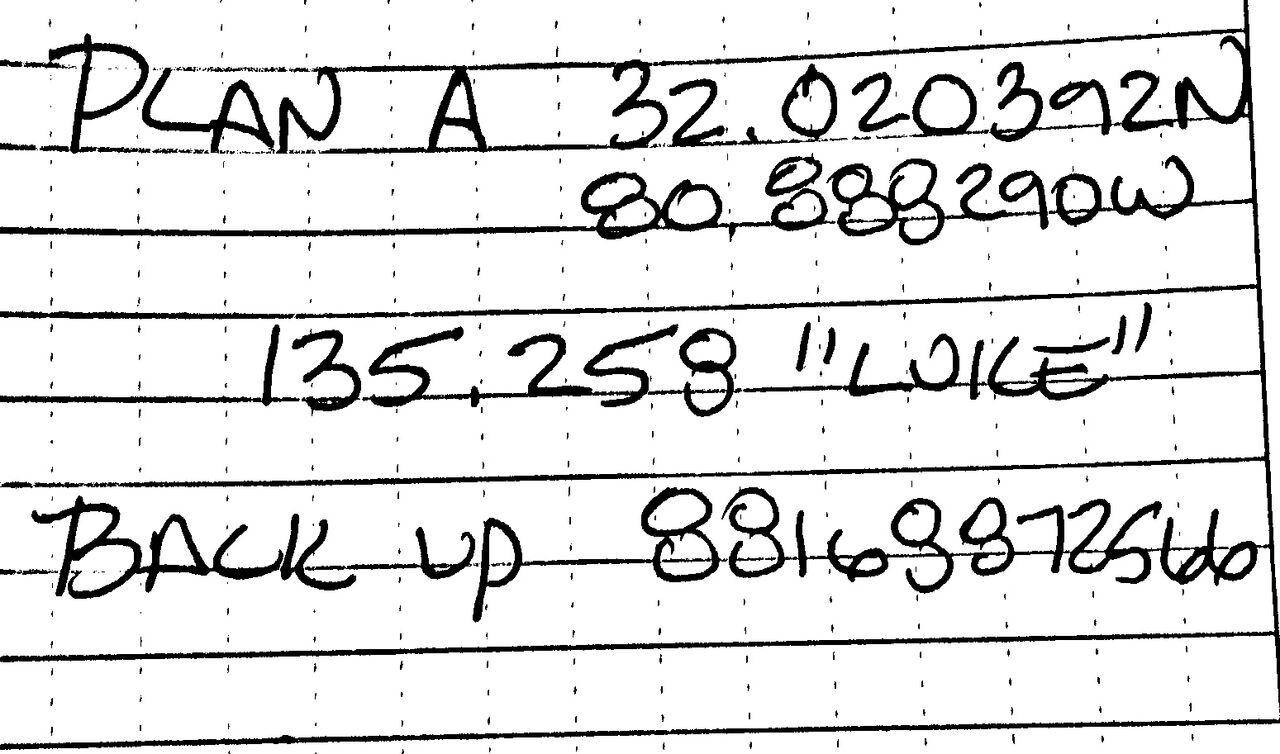 PLAN A 32.020392N
80.888290W
135.258 "LUKE"
BACK UP 881698872566